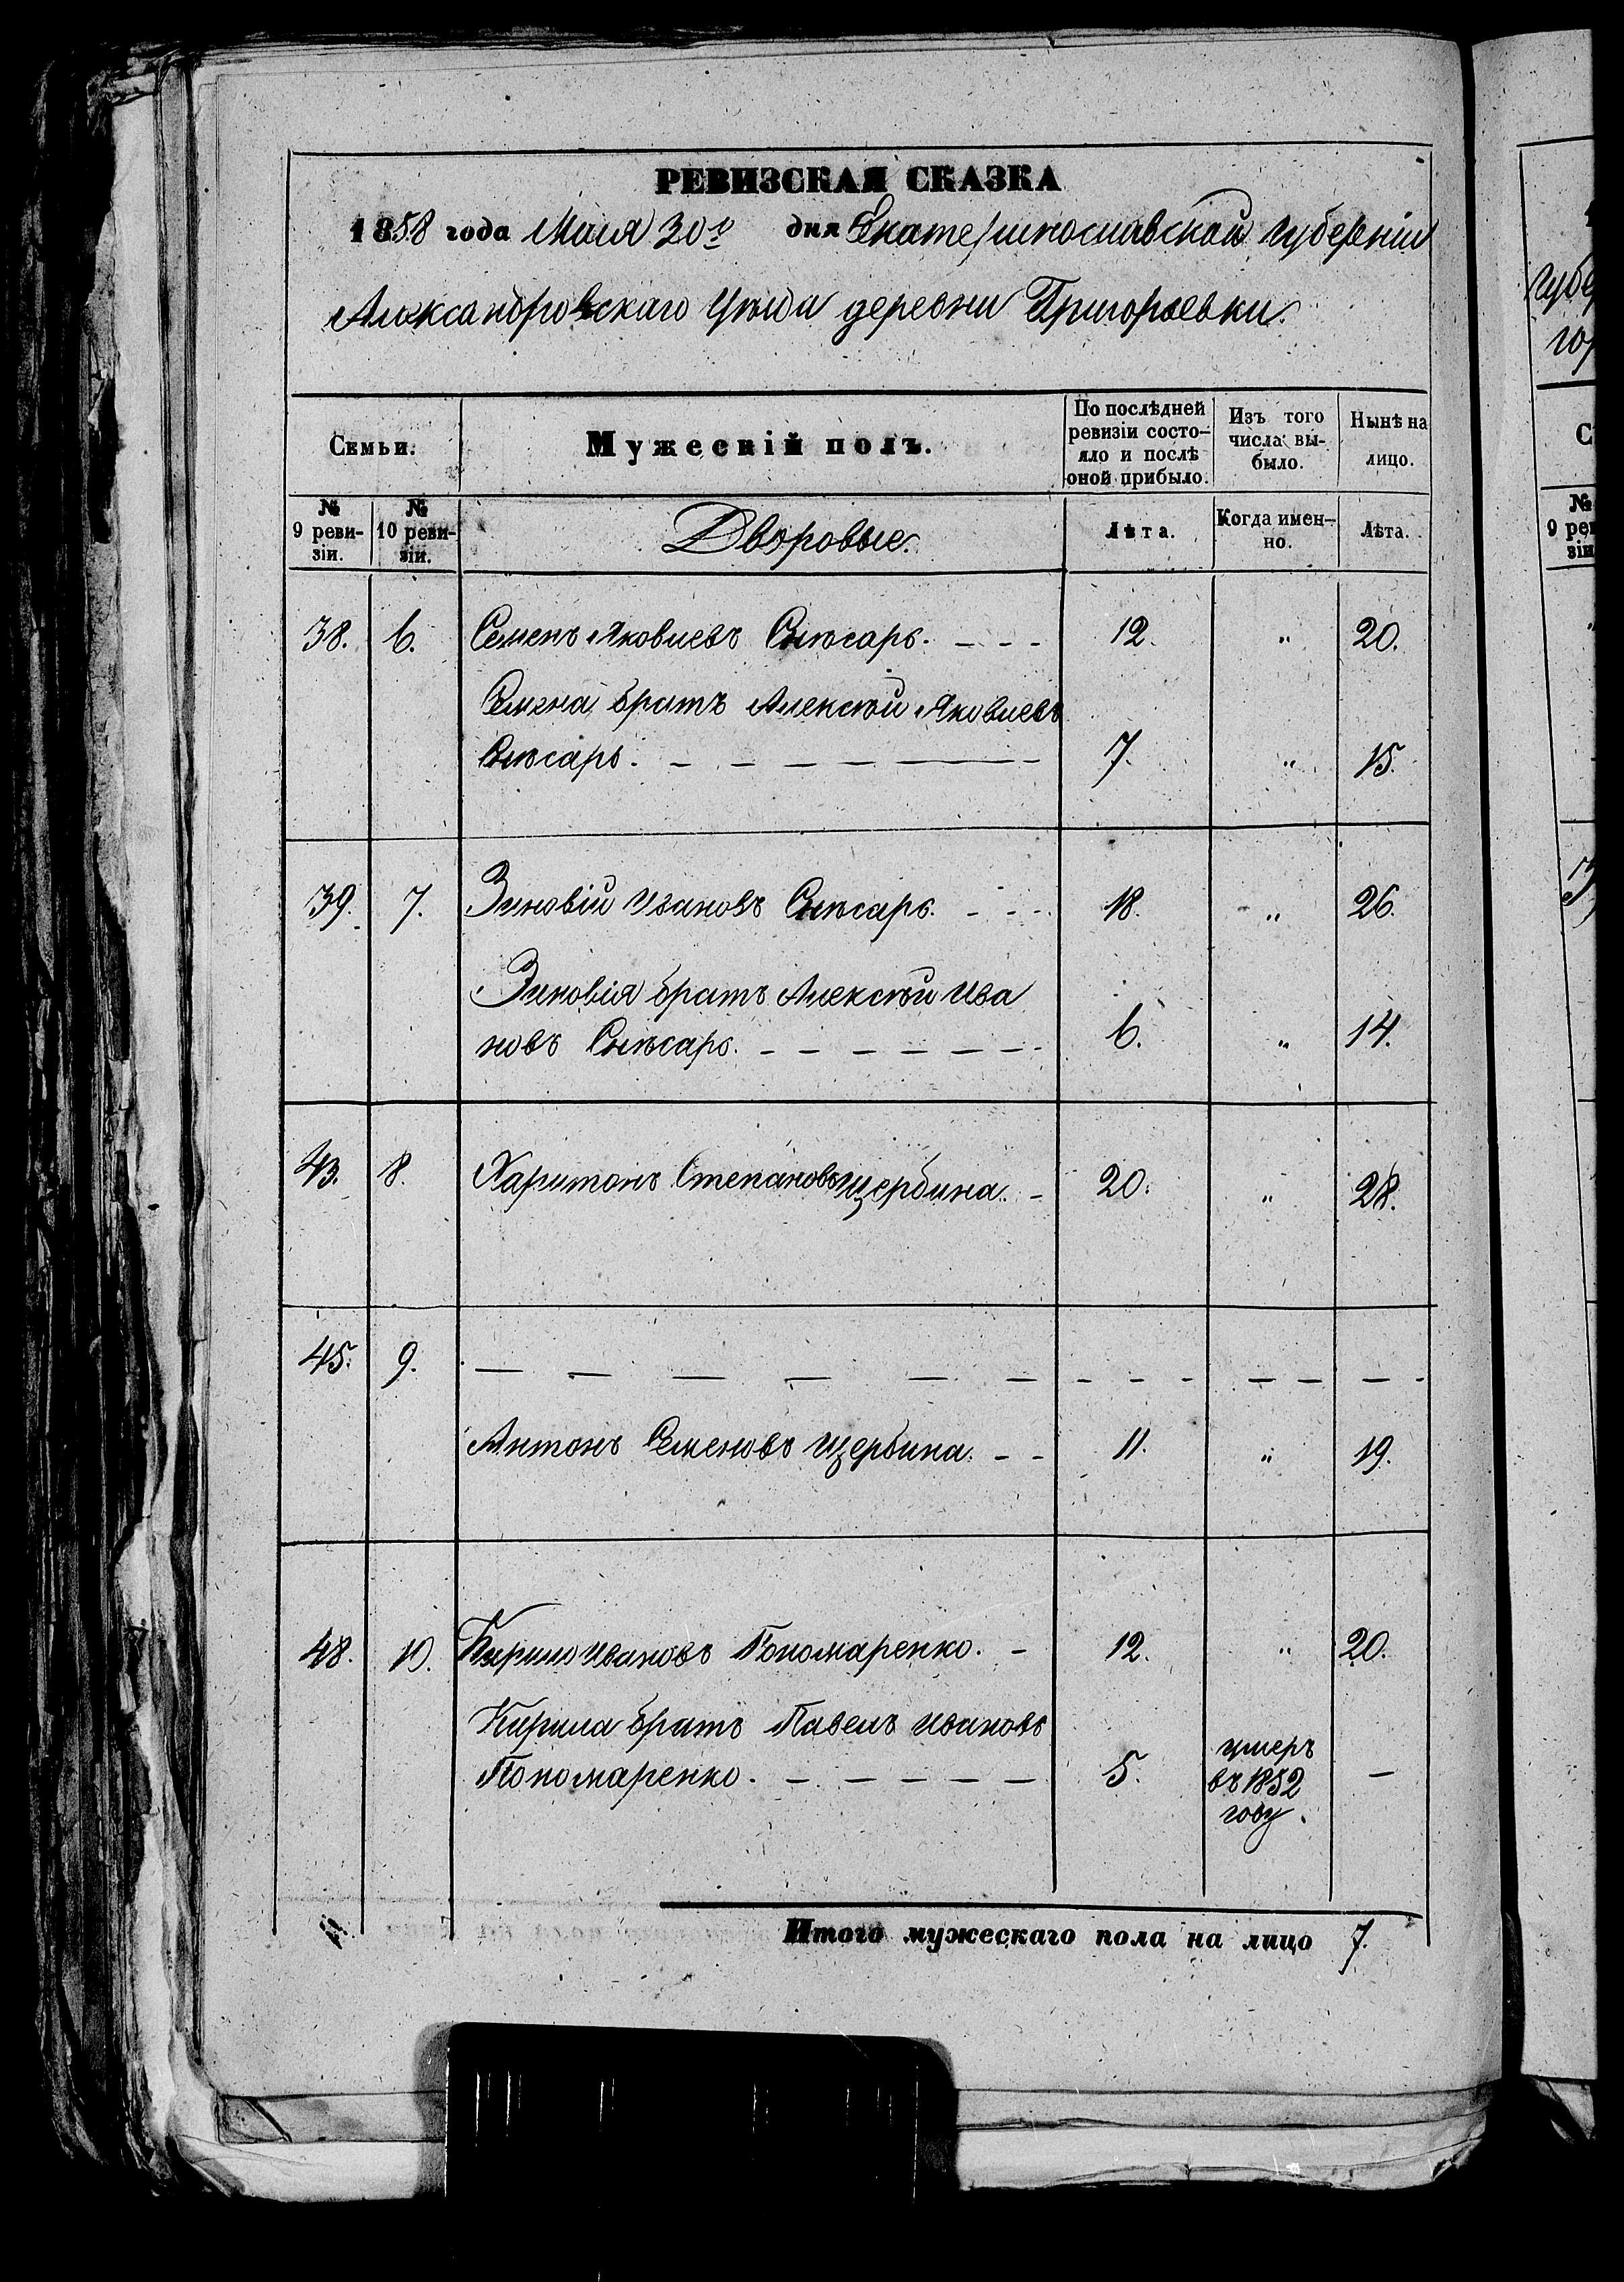 РЕВИЗСКАЯ СКАЗКА
1858 года Маія 30го дня Екатеринославской Губерніи
Александровскаго Уѣзда деревни Григорьевки.
Семьи.
Мужескій полъ.
По послѣдней ревизіи состояло и послѣ оной прибыло.
Изъ того числа выбыло.
Нынѣ на лицо.
№ 9 ревизіи.
№ 10 ревизіи.
Дворовые.
Лѣта.
Когда именно.
Лѣта.
38. 6. Семенъ Яковлевъ Слѣсарь. - - - 12. " 20.
Семена братъ Алексѣй Яковлевъ
Слѣсарь. - - - - - 7. " 15.
39. 7. Зиновій Ивановъ Слѣсарь. - - - 18. " 26.
Зиновія братъ Алексѣй Ива
новъ Слѣсарь. - - - - - - - 6. " 14.
43. 8. Харитонъ Степановъ Щербина. - 20. " 28.
45. 9. — — — — — — - - - - — — — — -
Антонъ Семеновъ Щербина. - - 11. " 19.
48. 10. Кирило Ивановъ Пономаренко. - 12. " 20.
Кирила братъ Павелъ Ивановъ
Пономаренко. - - - - - - 5. умеръ въ 1852 году. —
Итого мужескаго пола на лицо 7.